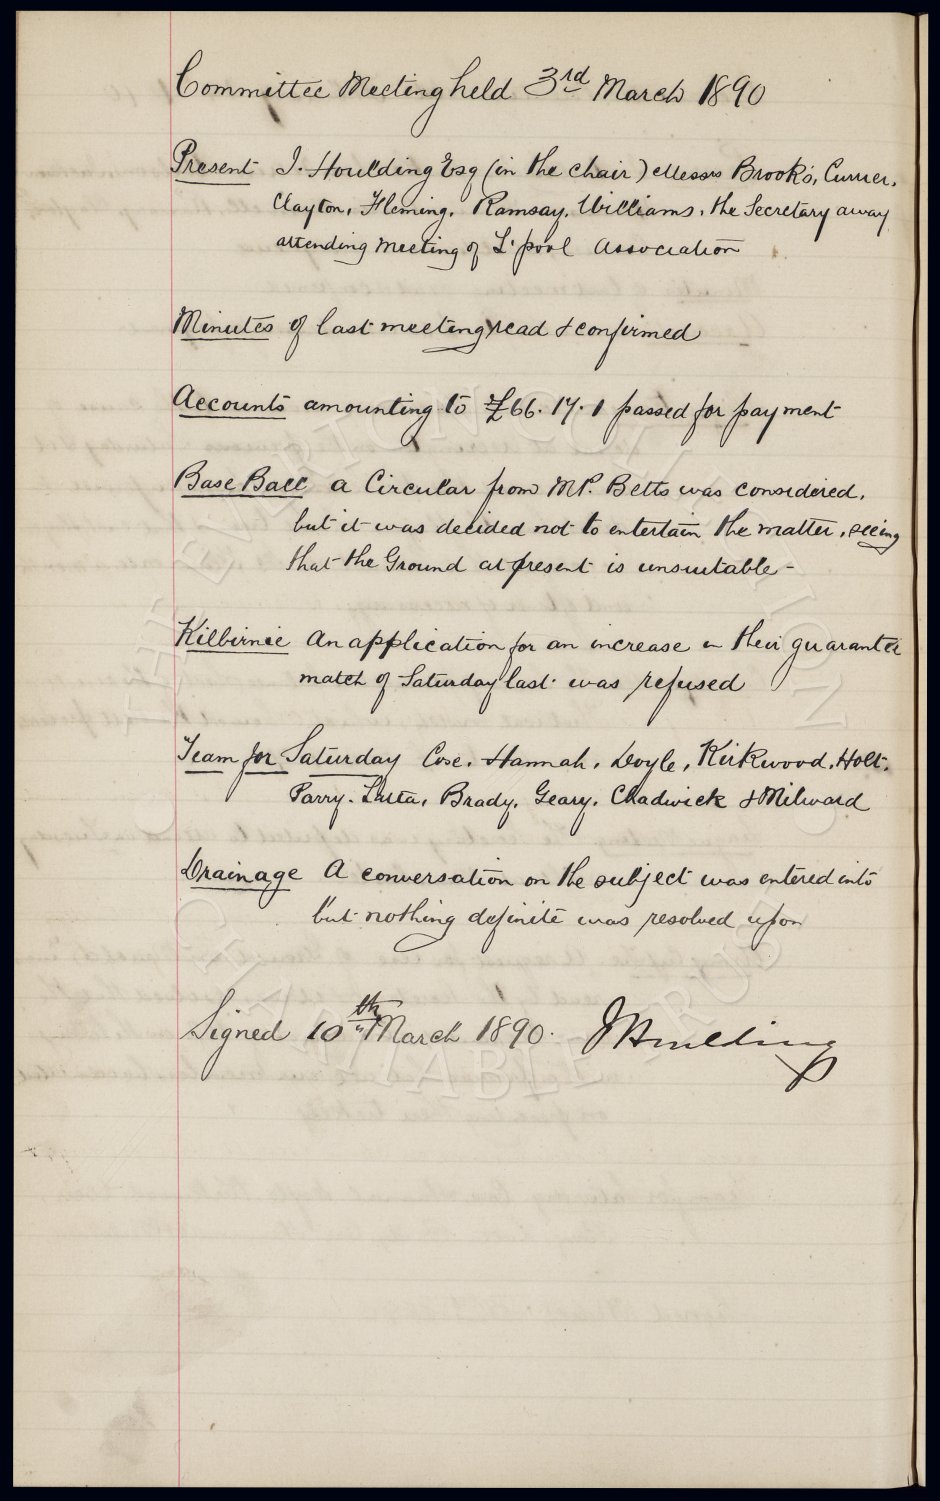 Committee Meeting held 3rd March 1890
Present J. Houlding Esq (in the chair) Messrs Brooks, Currier,
Clayton, Fleming, Ramsay, Williams, the Secretary away
attending meeting of L'pool Association
Minutes of last meeting read & confirmed
Accounts amounting to £66.17.1 passed for payment
Base Ball a Circular from Mr. Betts was considered,
but it was decided not to entertain the matter, seeing
that the Ground at present is unsuitable -
Kilbirnie An application for an increase in their guarantee
match of Saturday last was refused
Team for Saturday Cox, Hannah, Doyle, Kirkwood, Holt,
Parry, Latta, Brady, Geary, Chadwick & Milward
Drainage A conversation on the subject was entered into
but nothing definite was resolved upon
Signed 10th March 1890. J Houlding
THE EVERTON COLLECTION
CHARITABLE TRUST